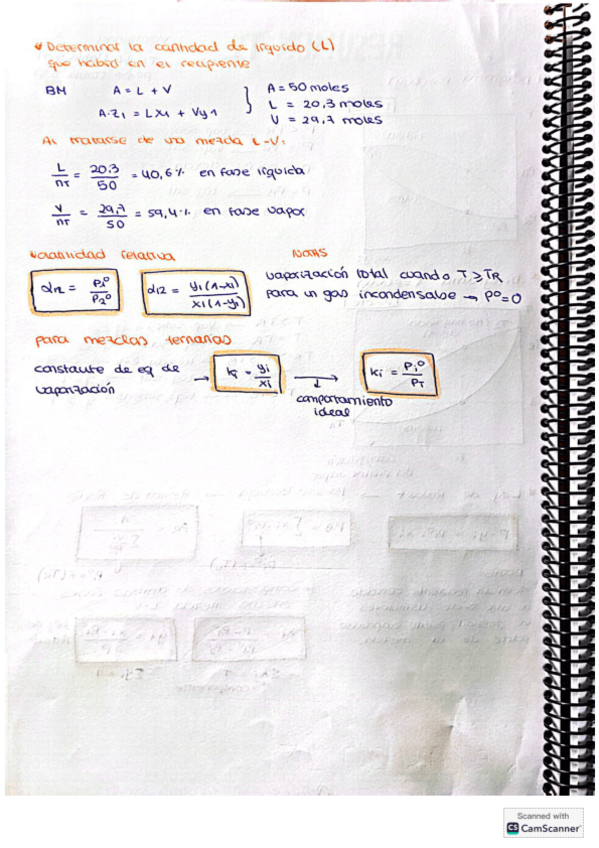 Determinar la cantidad de líquido (L)
que habrá en el recipiente
BM A = L + V A = 50 moles
A·z1 = Lx1 + Vy1 L = 20,3 moles
V = 29,7 moles
Al tratarse de una mezcla L-V:
L/nT = 20,3/50 = 40,6% en fase líquida
V/nT = 29,7/50 = 59,4% en fase vapor
Volatilidad relativa NOTAS
α12 = P1º/P2º α12 = y1(1-x1)/x1(1-y1) vaporización total cuando T ≥ TR
para un gas incondensable → Pº=0
para mezclas ternarias
constante de eq de → ki = yi/xi → ki = Piº/PT
vaporización comportamiento
ideal
Scanned with
CS CamScanner